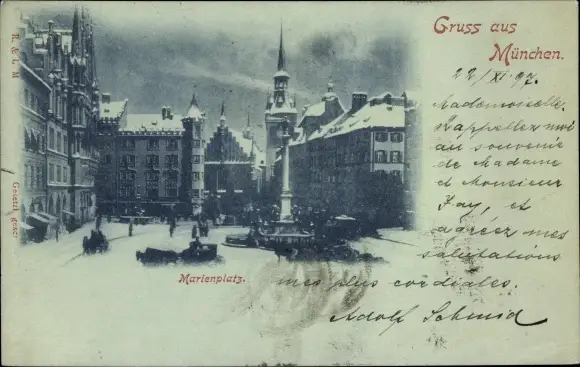 Gruss aus
München.
22/XI.97.
Mademoiselle.
Rappellez moi
au souvenir
de Madame
et Monsieur
Fay, et
agréez mes
salutations
mes plus cordiales.
Adolf Schmid
Marienplatz.
R. & L. M.
Gesetzl. gesch.